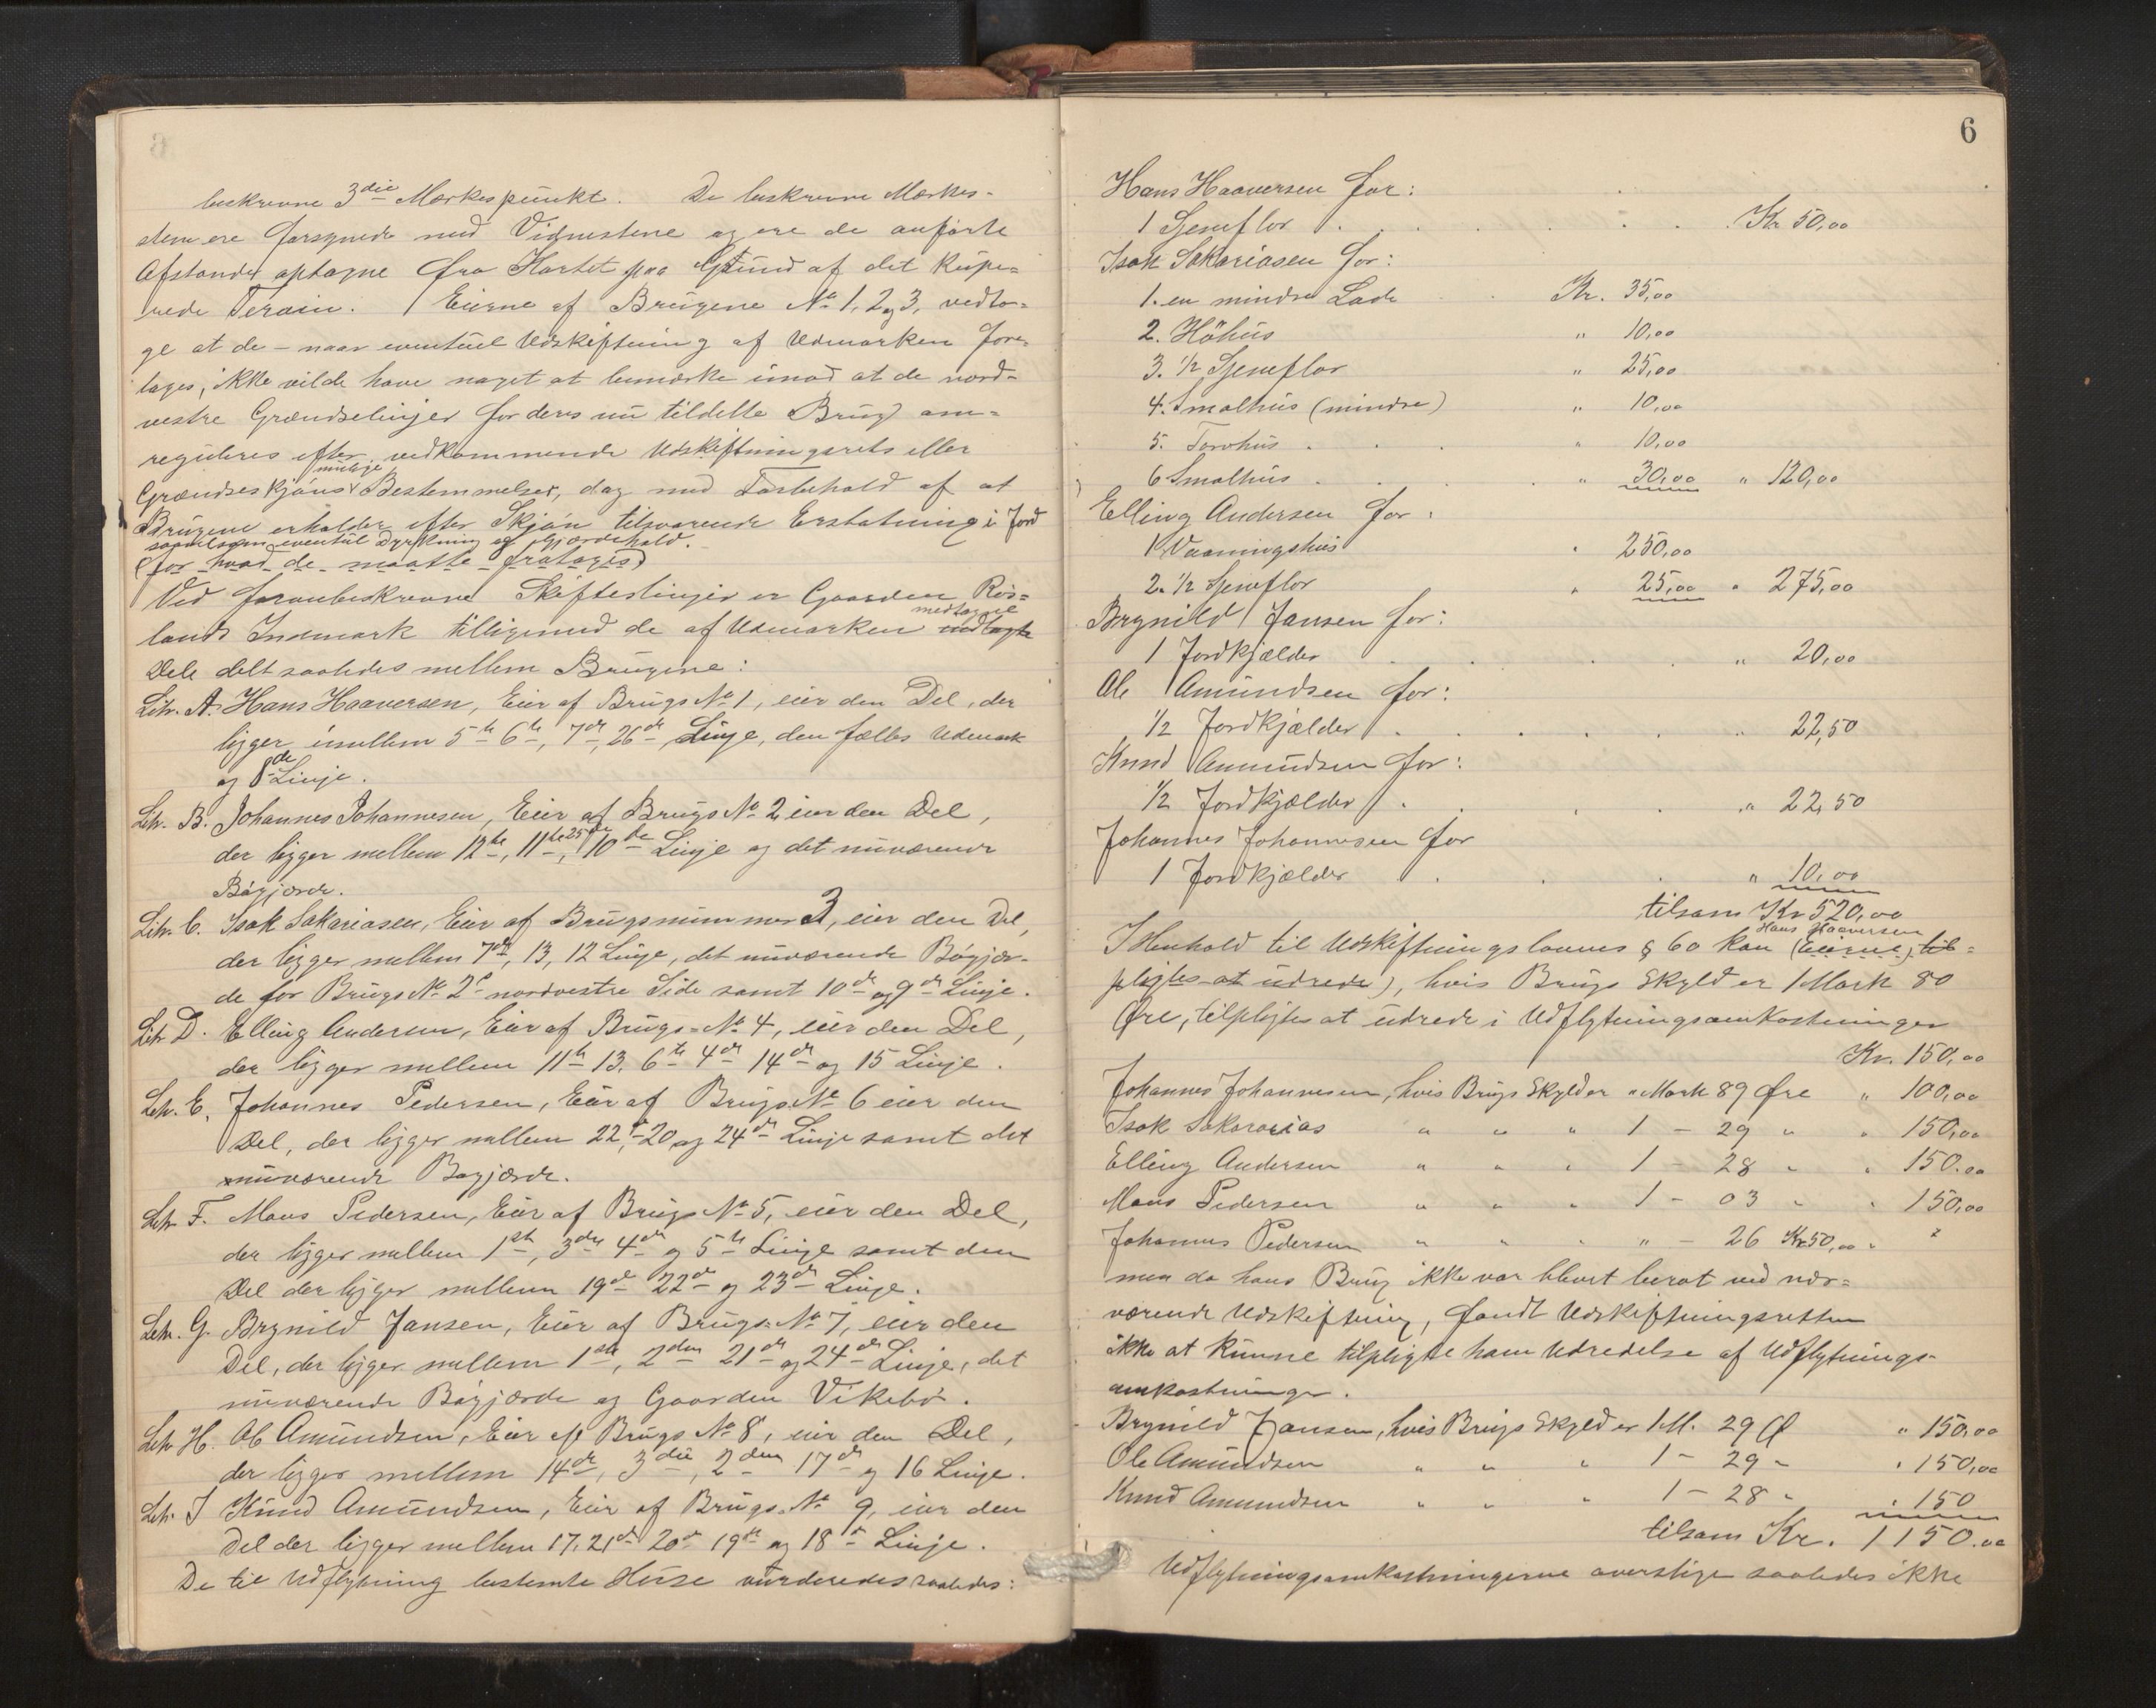 beskrevne 3die Mærkespunkt. De beskrevne Mærkes-
stene ere forsynede med Vidnestene og ere de anførte
Afstande optagne fra Kartet paa Grund af det kupe-
rede Terain. Eierne af Brugene No 1, 2 og 3, vedto-
ge at de – naar eventuel Udskiftning af Udmarken fore-
tages, ikke vilde have noget at bemærke imod at de nord-
vestre Grændselinjer for deres nu tildelte Brug om-
reguleres efter vedkommende Udskiftningsrets eller
Grændseskjøns mulige Bestemmelser, dog med Forbehold af at
Brugene erholder efter Skjøn tilsvarende Erstatning i Jord
saavelsom eventuel Dyrkning og Gjærdehold.
(for hvad de maatte fratages)
Ved foranbeskrevne Skifteslinjer er Gaarden Røs-
lands Indmark tilligemed de af Udmarken indtagte medtagne
Dele delt saaledes mellem Brugene:
Litr. A. Hans Haaversen, Eier af Brugs No 1, eier den Del, der
ligger imellem 5te 6te, 7de, 26de Linje, den fælles Udmark
og 8de Linje.
Litr. B. Johannes Johannesen, Eier af Brugs No 2 eier den Del,
der ligger mellem 12te, 11te, 25de, 10de Linje og det nuværende
Bøgjærde.
Litr. C. Isak Sakariasen, Eier af Brugsnummer 3, eier den Del,
der ligger mellem 7de, 13, 12 Linje, det nuværende Bøgjær-
de for Brugs No 2s nordvestre Side samt 10de og 9de Linje.
Litr D. Elling Andersen, Eier af Brugs-No 4, eier den Del,
der ligger mellem 11te 13. 6te 4de 14de og 15 Linje.
Litr. E. Johannes Pedersen, Eier af Brugs No 6 eier den
Del, der ligger mellem 22de, 20 og 24de Linje samt det
nuværende Bøgjærde.
Litr F. Mons Pedersen, Eier af Brugs No 5, eier den Del,
der ligger mellem 1ste, 3die 4de og 5te Linje samt den
Del der ligger mellem 19de 22de og 23de Linje.
Litr. G. Brynild Jansen, Eier af Brugs No 7, eier den
Del, der ligger mellem 1ste, 2den 21de og 24de Linje, det
nuværende Bøgjærde og Gaarden Vikebø.
Litr H. Ole Amundsen, Eier af Brugs No 8, eier den Del,
der ligger mellem 14de, 3die, 2den 17de og 16 Linje.
Litr. I Knud Amundsen, Eier af Brugs No 9, eier den
Del der ligger mellem 17, 21de 20de 19de og 18de Linje.
De til Udflytning bestemte Huse vurderedes saaledes:
6
Hans Haaversen for:
1 Gjeneflor . . . . . . . Kr 50,00
Isak Sakariasen for:
1. en mindre Lade . . Kr. 35,00
2. Høhus " 10,00
3. 1/2 Gjeneflor " 25,00
4. Smalhus (mindre) " 10,00
5. Torvhus . . . " 10,00
6 Smalhus . . . " 30,00 " 120,00
Elling Andersen for:
1 Vaaningshus " 250,00
2. 1/2 Gjeneflor " 25,00 " 275,00
Brynild Jansen for:
1 Jordkjælder . . . . " 20,00
Ole Amundsen for:
1/2 Jordkjælder . . . . " 22,50
Knud Amundsen for:
1/2 Jordkjælder . . . . " 22,50
Johannes Johannesen for
1 Jordkjælder . . " 10,00
tilsam Kr 520,00
I Henhold til Udskiftningslovens § 60 kan (Eierne) Hans Haaversen til-
pligtes at udrede), hvis Brugs Skyld er 1 Mark 80
Øre, tilpligtes at udrede i Udflytningsomkostninger
Kr. 150,00
Johannes Johannesen, hvis Brugs Skyld er " Mark 89 Øre " 100,00
Isak Sakararias " " " 1 – 29 " " 150,00
Elling Andersen " " " 1 – 28 " " 150.00
Mons Pedersen " " " 1 – 03 " " 150,00
Johannes Pedersen " " " " – 26 Kr 50,00 " "
men da hans Brug ikke var blevet berørt ved nær-
værende Udskiftning, fandt Udskiftningsretten
ikke at kunne tilpligte ham Udredelse af Udflytnings-
omkostninger.
Brynild Jansen, hvis Brugs Skyld er 1 M. 29 Ø " 150,00
Ole Amundsen " " " 1 – 29 " " 150,00
Knud Amundsen " " " 1 – 28 " " 150
tilsam Kr. 1150.00
Udflytningsomkostningerne overstige saaledes ikke